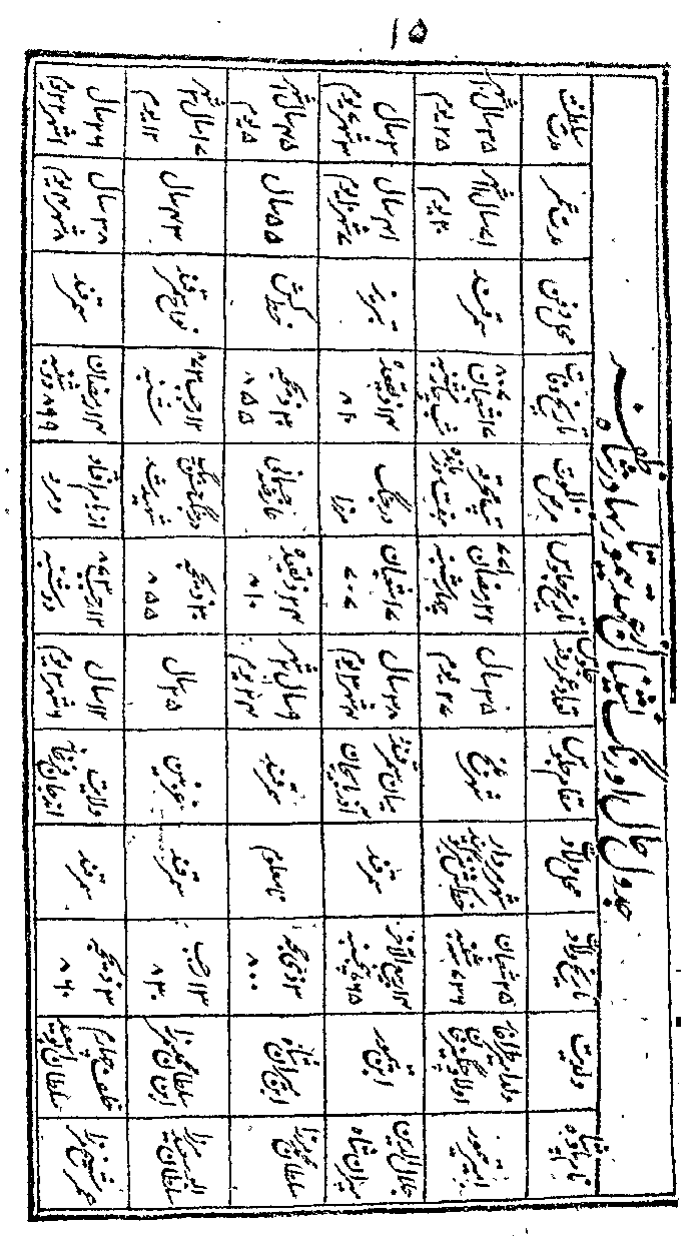 ۱۵
جدول حال اورنگ نشینان از امیر تیمور تا بهادر شاه ظفر
نام بادشاه | ولدیت | تاریخ ولادت | محل ولادت | مقام جلوس | مقدار عمر وقت جلوس | تاریخ جلوس | مرض الموت | تاریخ وفات | محل دفن | مدت عمر | مدت سلطنت
امیر تیمور | ولد امیر طراغای | ۲۵ شعبان ۷۳۶ | شهر | شهر بلخ | ۳۵ سال ۲۷ یوم | ۲۲ رمضان ۷۷۱ چهارشنبه | تپ محرقه | ۱۷ شعبان ۸۰۷ شب چهارشنبه | سمرقند | ۷۱ سال ۱۱ شهر ۲۰ یوم | ۳۵ سال ۱۱ شهر ۲۵ یوم
جلال الدین میران شاه | ابن تیمور | ۱۳ ربیع الآخر ۷۶۹ پنجشنبه | سمرقند | میان سمرقند آذربایجان | ۳۸ سال ۴ شهر ۳ یوم | ۱۷ شعبان ۸۰۷ | در جنگ | ۲۴ ذیقعده ۸۱۰ | تبریز | ۴۱ سال ۷ شهر ۱۰ یوم | ۳ سال ۳ شهر ۷ یوم
سلطان محمد مرزا | ابن میران شاه | ۳ ذی حجه ۸۰۰ | نامعلوم | سمرقند | ۹ سال | ۲۴ ذیقعده ۸۱۰ | عارضه جسمانی | ۳۰ ذیحجه ۸۵۵ | خطه کش | ۵۵ سال | ۴۵ سال ۱ شهر ۵ یوم
سلطان ابو سعید مرزا | ابن سلطان محمد مرزا | ۱۳ رجب ۸۳۰ | سمرقند | غزنین | ۲۵ سال | ۳۰ ذیحجه ۸۵۵ | شهید شد | ۱۲ رجب ۸۷۳ شنبه | نواح سمرقند | ۴۳ سال | ۱۷ سال ۶ شهر ۱۲ یوم
عمر شیخ مرزا | خلف چهارم سلطان ابو سعید | ۳ ذیحجه ۸۶۰ | سمرقند | ولایت اندجان فرغانه | ۱۲ سال | ۱۲ رجب ۸۷۳ دوشنبه | از بام افتاد و مرد | ۴ رمضان ۸۹۹ دوشنبه | سمرقند | ۳۸ سال ۸ شهر | ۲۶ سال ۱ شهر ۲۲ یوم